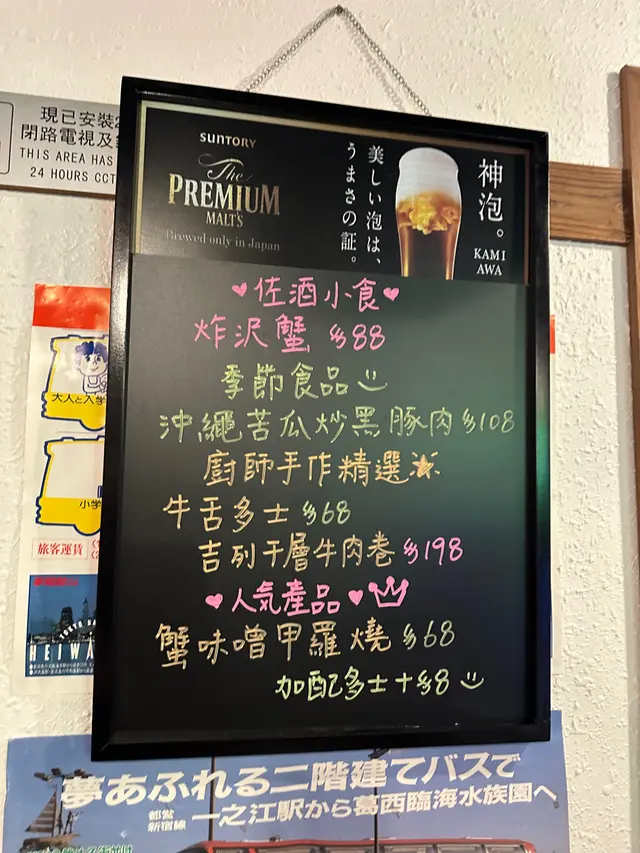 現已安裝2
閉路電視及
THIS AREA HAS
24 HOURS CCT
SUNTORY
The
PREMIUM
MALT'S
Brewed only in Japan
美しい泡は、
うまさの証。
神泡。
KAMI
AWA
♥佐酒小食♥
炸沢蟹 $88
季節食品
沖繩苦瓜炒黑豚肉 $108
廚師手作精選
牛舌多士 $68
吉列千層牛肉卷 $198
♥人気產品♥
蟹味噌甲羅燒 $68
加配多士+$8
大人と入学
小学
旅客運賃
HEIWA
夢あふれる二階建てバスで
都営
新宿線
一之江駅から葛西臨海水族園へ